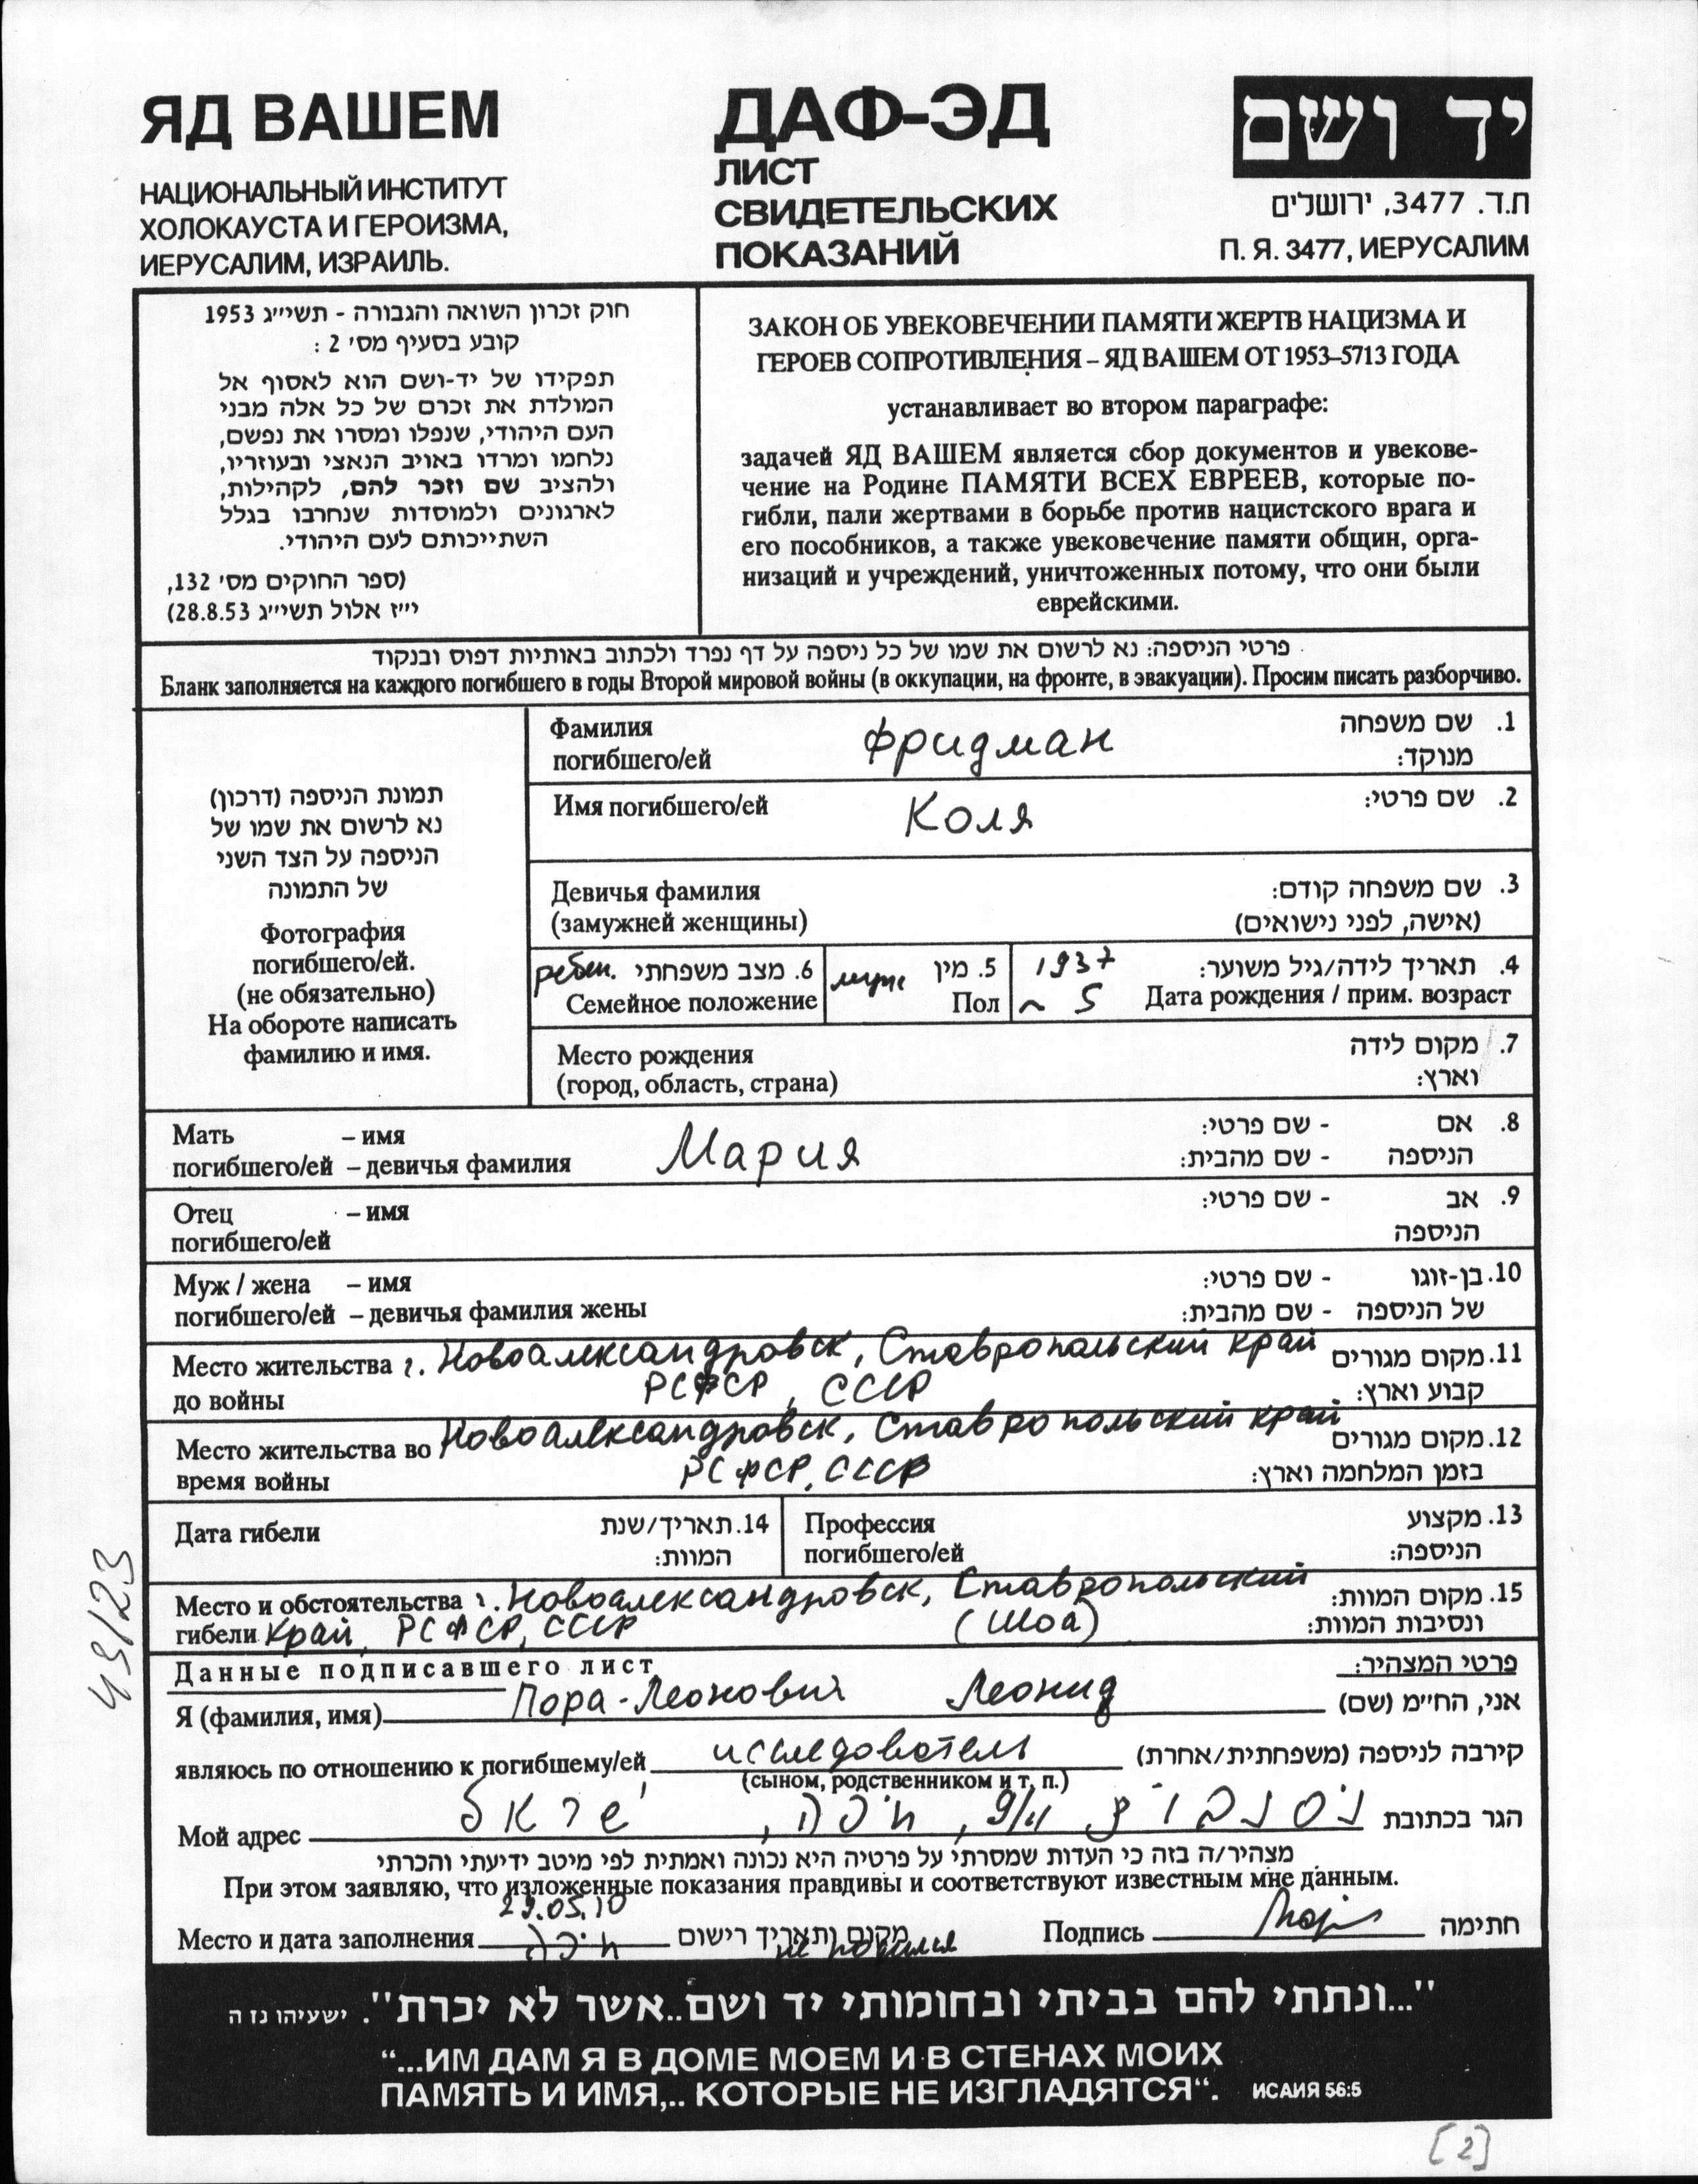 ЯД ВАШЕМ
НАЦИОНАЛЬНЫЙ ИНСТИТУТ
ХОЛОКАУСТА И ГЕРОИЗМА,
ИЕРУСАЛИМ, ИЗРАИЛЬ.
ДАФ-ЭД
ЛИСТ
СВИДЕТЕЛЬСКИХ
ПОКАЗАНИЙ
יד ושם
ת.ד. 3477, ירושלים
П. Я. 3477, ИЕРУСАЛИМ
חוק זכרון השואה והגבורה - תשי״ג 1953
קובע בסעיף מס׳ 2 :
תפקידו של יד-ושם הוא לאסוף אל
המולדת את זכרם של כל אלה מבני
העם היהודי, שנפלו ומסרו את נפשם,
נלחמו ומרדו באויב הנאצי ובעוזריו,
ולהציב שם וזכר להם, לקהילות,
לארגונים ולמוסדות שנחרבו בגלל
השתייכותם לעם היהודי.
(ספר החוקים מס׳ 132,
י״ז אלול תשי״ג 28.8.53)
ЗАКОН ОБ УВЕКОВЕЧЕНИИ ПАМЯТИ ЖЕРТВ НАЦИЗМА И
ГЕРОЕВ СОПРОТИВЛЕНИЯ – ЯД ВАШЕМ ОТ 1953–5713 ГОДА
устанавливает во втором параграфе:
задачей ЯД ВАШЕМ является сбор документов и увекове-
чение на Родине ПАМЯТИ ВСЕХ ЕВРЕЕВ, которые по-
гибли, пали жертвами в борьбе против нацистского врага и
его пособников, а также увековечение памяти общин, орга-
низаций и учреждений, уничтоженных потому, что они были
еврейскими.
פרטי הניספה: נא לרשום את שמו של כל ניספה על דף נפרד ולכתוב באותיות דפוס ובנקוד
Бланк заполняется на каждого погибшего в годы Второй мировой войны (в оккупации, на фронте, в эвакуации). Просим писать разборчиво.
תמונת הניספה (דרכון)
נא לרשום את שמו של
הניספה על הצד השני
של התמונה
Фотография
погибшего/ей.
(не обязательно)
На обороте написать
фамилию и имя.
Фамилия Фридман 1. שם משפחה
погибшего/ей מנוקד:
Имя погибшего/ей Коля 2. שם פרטי:
Девичья фамилия 3. שם משפחה קודם:
(замужней женщины) (אישה, לפני נישואים)
ребен. 6. מצב משפחתי муж 5. מין 1937 4. תאריך לידה/גיל משוער:
Семейное положение Пол ~ 5 Дата рождения / прим. возраст
Место рождения 7. מקום לידה
(город, область, страна) וארץ:
Мать – имя - שם פרטי: 8. אם
погибшего/ей – девичья фамилия Мария - שם מהבית: הניספה
Отец – имя - שם פרטי: 9. אב
погибшего/ей הניספה
Муж / жена – имя - שם פרטי: 10. בן-זוגו
погибшего/ей – девичья фамилия жены - שם מהבית: של הניספה
Место жительства г. Новоалександровск, Ставропольский край 11. מקום מגורים
до войны РСФСР, СССР קבוע וארץ:
Место жительства во Новоалександровск, Ставропольский край 12. מקום מגורים
время войны РСФСР, СССР בזמן המלחמה וארץ:
Дата гибели 14. תאריך/שנת Профессия 13. מקצוע
המוות: погибшего/ей הניספה:
Место и обстоятельства г. Новоалександровск, Ставропольский 15. מקום המוות:
гибели край, РСФСР, СССР (Шоа) ונסיבות המוות:
Данные подписавшего лист פרטי המצהיר:
Я (фамилия, имя) Пора-Леонович Леонид אני, הח״מ (שם)
являюсь по отношению к погибшему/ей исследователь קירבה לניספה (משפחתית/אחרת)
(сыном, родственником и т. п.)
Мой адрес חיפה, הגר בכתובת
מצהיר/ה בזה כי העדות שמסרתי על פרטיה היא נכונה ואמתית לפי מיטב ידיעתי והכרתי
При этом заявляю, что изложенные показания правдивы и соответствуют известным мне данным.
29.05.10
Место и дата заполнения חיפה מקום ותאריך רישום Подпись חתימה
"...ונתתי להם בביתי ובחומותי יד ושם..אשר לא יכרת". ישעיהו נו ה
“...ИМ ДАМ Я В ДОМЕ МОЕМ И В СТЕНАХ МОИХ
ПАМЯТЬ И ИМЯ,.. КОТОРЫЕ НЕ ИЗГЛАДЯТСЯ“. ИСАИЯ 56:5
[2]